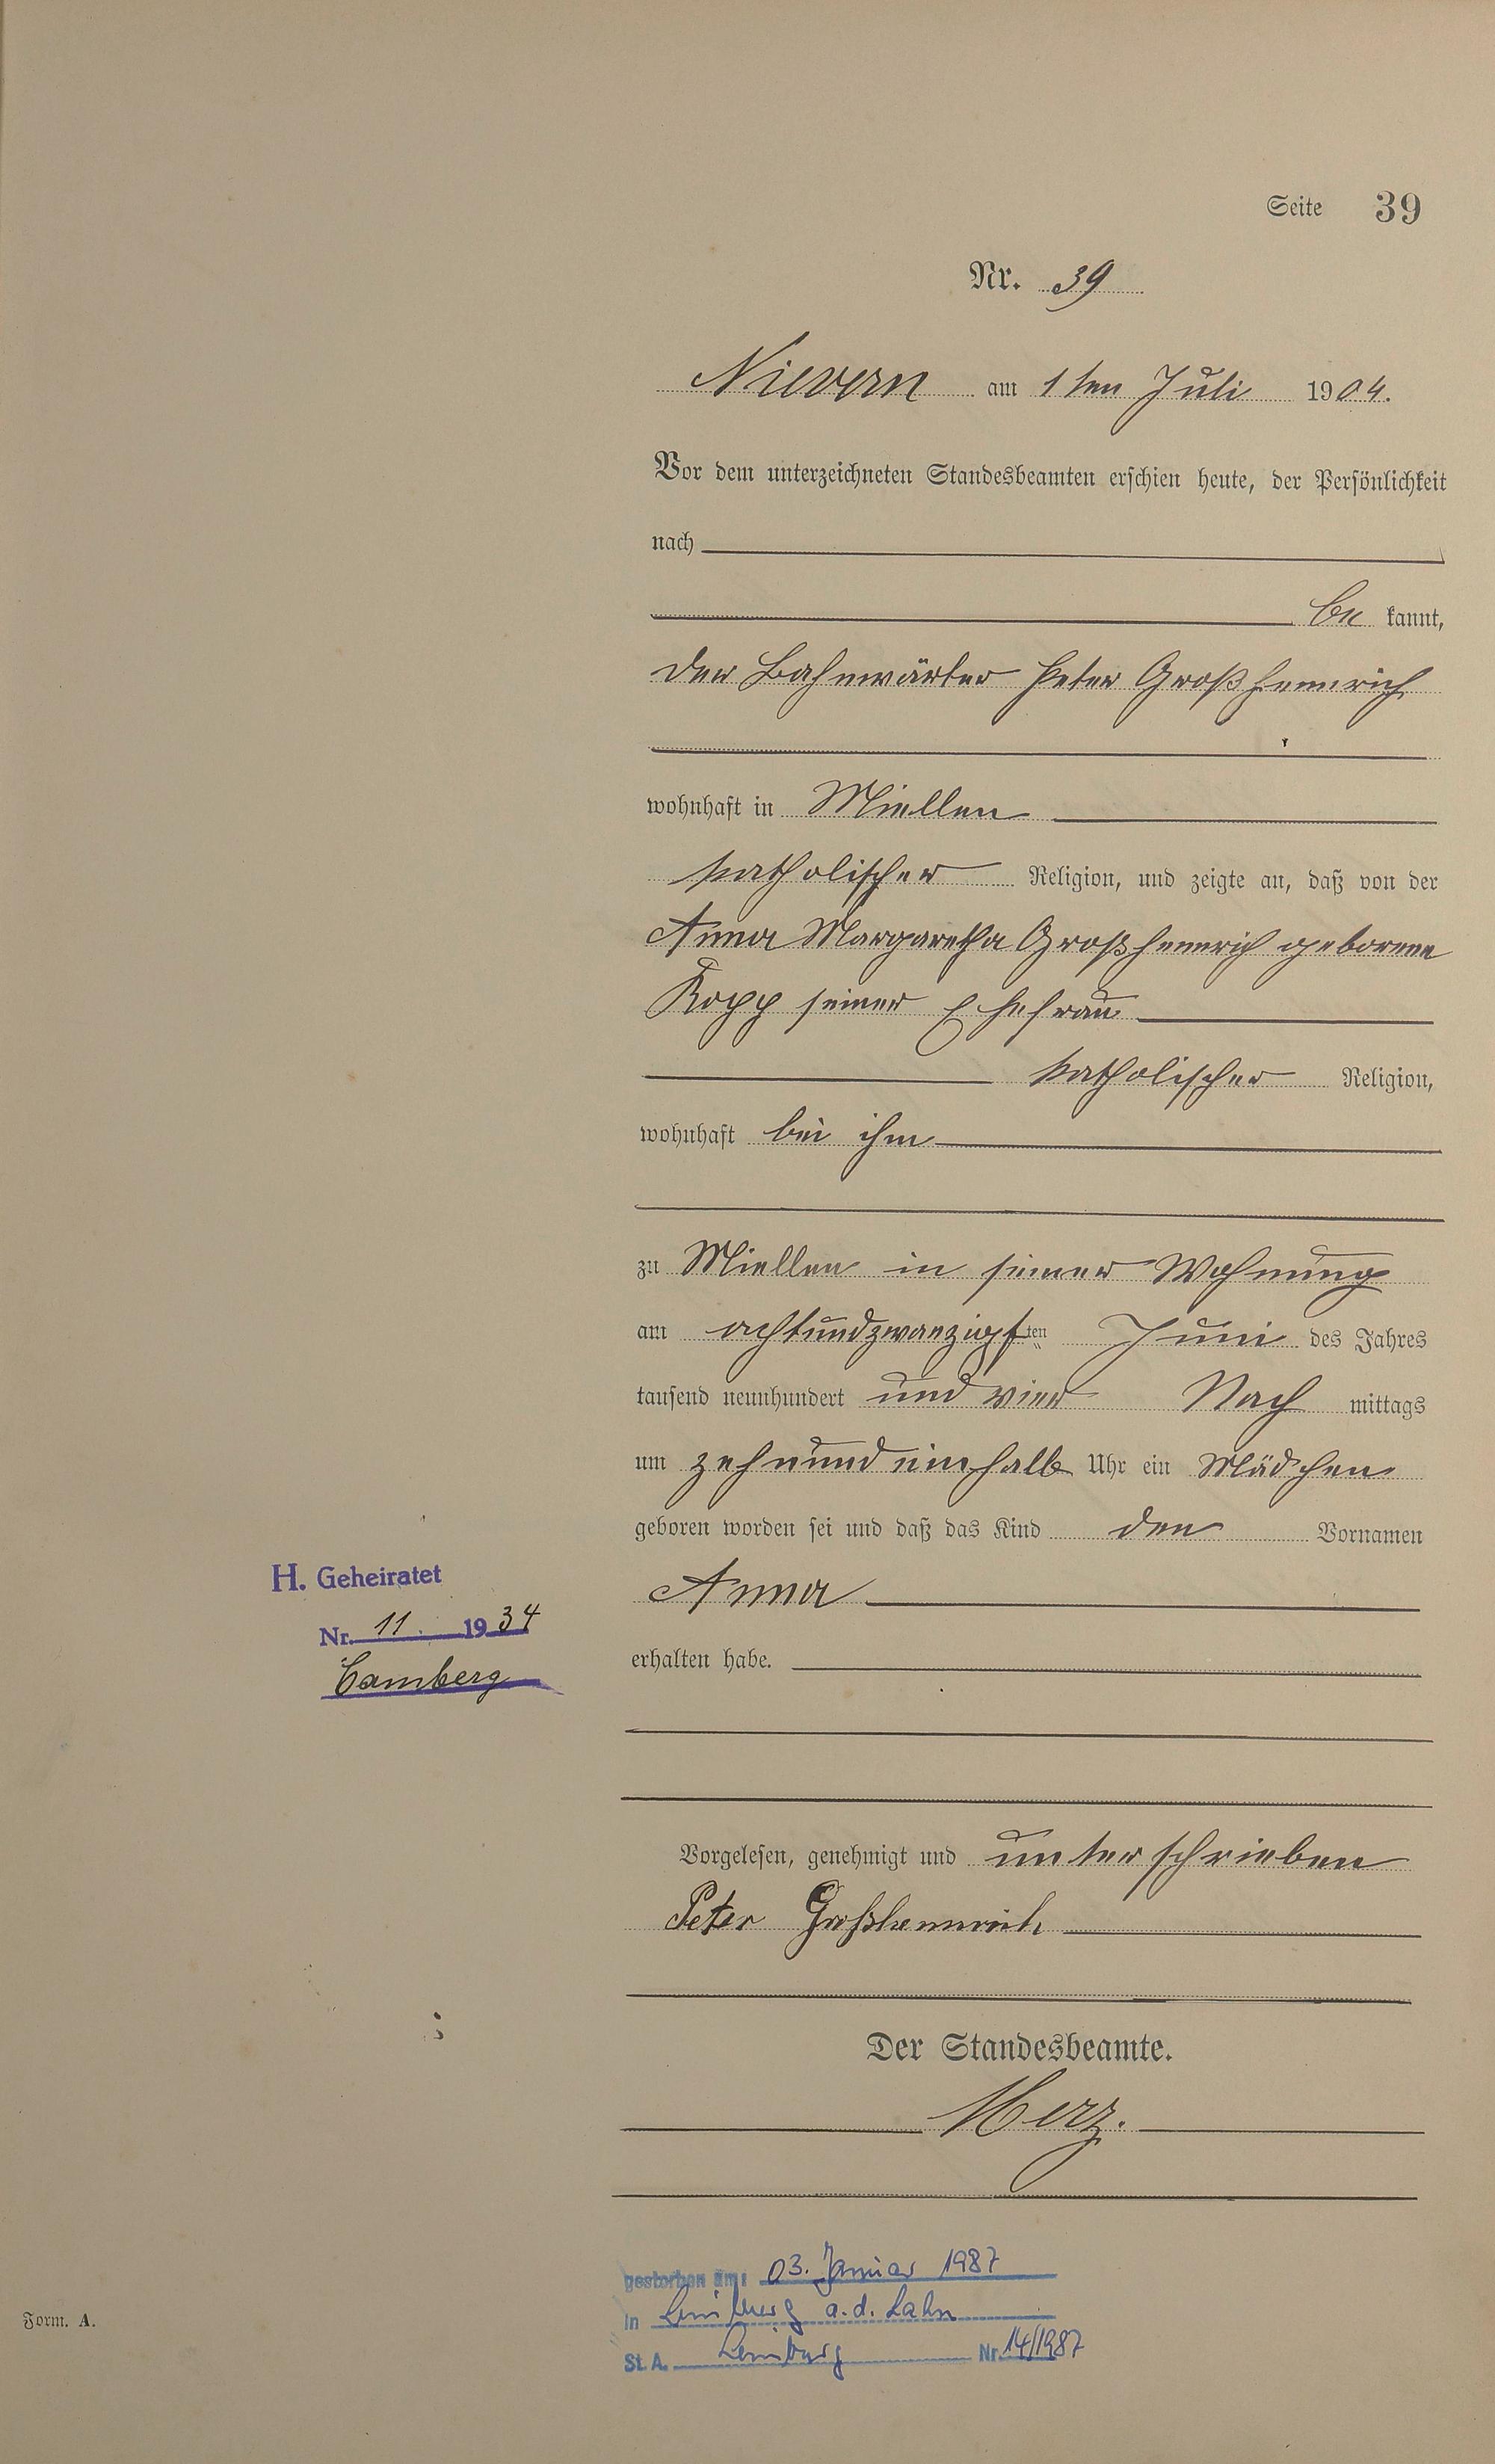 Seite 39
Nr. 39
Nievern am 1ten Juli 1904.
Vor dem unterzeichneten Standesbeamten erschien heute, der Persönlichkeit
nach
be kannt,
der Bahnwärter Peter Großhennrich
wohnhaft in Miellen
katholischer Religion, und zeigte an, daß von der
Anna Margaretha Großhennrich geborene
Kopp seiner Ehefrau
katholischer Religion,
wohnhaft bei ihm
zu Miellen in seiner Wohnung
am achtundzwanzigsten Juni des Jahres
tausend neunhundert und vier Nach mittags
um zehnundeinhalb Uhr ein Mädchen
geboren worden sei und daß das Kind den Vornamen
H. Geheiratet
Nr. 11. 1934
Camberg
Anna
erhalten habe.
Vorgelesen, genehmigt und unterschrieben
Peter Großhennrich
Der Standesbeamte.
Merz.
gestorben am: 03. Januar 1987
in Limburg a.d. Lahn
St. A. Limburg Nr. 14/1987
Form. A.